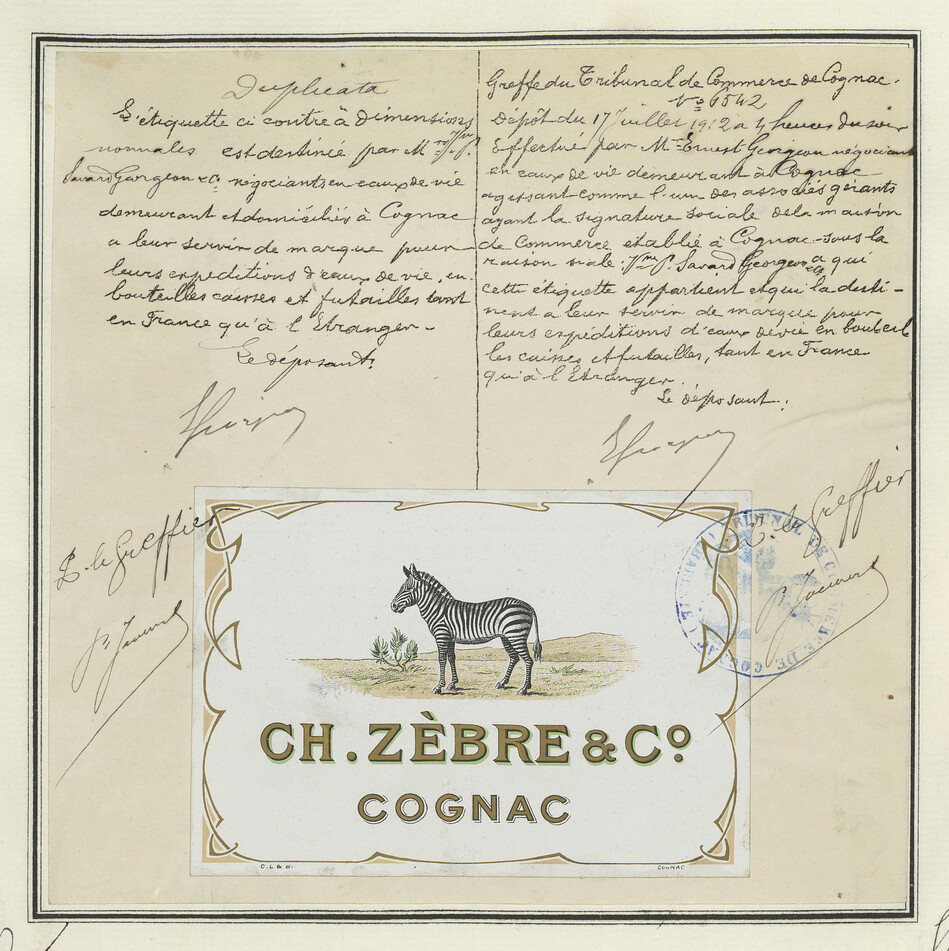 Duplicata
L'étiquette ci contre à dimensions
normales est destinée par M
Savard Georgeon & Cie négociants en eaux de vie
demeurant et domiciliés à Cognac
a leur servir de marque pour
leurs expéditions d'eaux de vie, en
bouteilles caisses et futailles tant
en France qu'à l'Etranger.
Le déposant.
P. le Greffier
Greffe du Tribunal de Commerce de Cognac.
No 6542
Dépôt du 17 Juillet 1912 a 4 heures du soir
Effectué par Mr Ernest Georgeon négociant
en eaux de vie demeurant à Cognac
agissant comme l'un des associés gérants
ayant la signature sociale de la maison
de Commerce établie à Cognac sous la
raison siale: P. Savard Georgeon & Cie a qui
cette étiquette appartient et qui la desti-
nent a leur servir de marque pour
leurs expéditions d'eaux de vie en bouteil
les caisses et futailles, tant en France
qu'à l'Etranger.
Le déposant.
P. le Greffier
TRIBUNAL DE COMMERCE DE COGNAC
CH. ZÈBRE & Co
COGNAC
C. L & C.
COGNAC